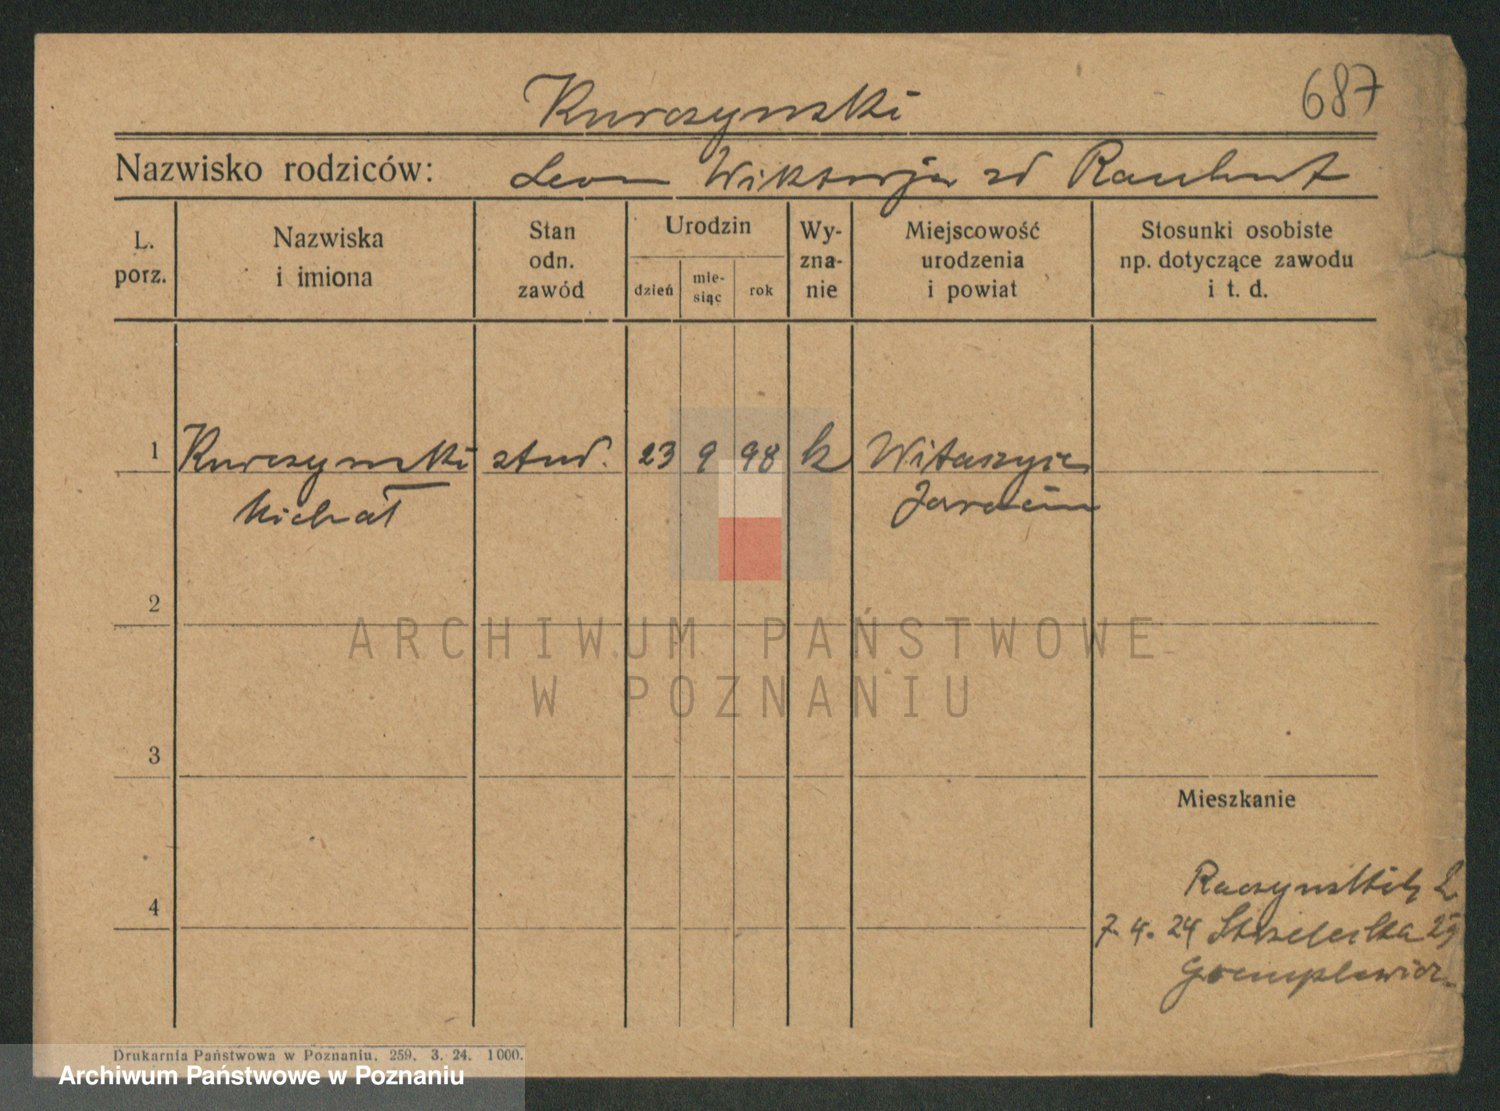 687
Kurczynski
Nazwisko rodziców: Leon Wiktorja zd Rauhut
L. porz.
Nazwiska i imiona
Stan odn. zawód
Urodzin
dzień
mie-siąc
rok
Wy-zna-nie
Miejscowość urodzenia i powiat
Stosunki osobiste np. dotyczące zawodu i t. d.
1 Kurczynski stud. 23 9 98 k Witaszyce
Michał Jarocin
2
ARCHIWUM PAŃSTWOWE
W POZNANIU
3
Mieszkanie
4
Raczynskich 2
7. 4. 24 Strzelecka 29
Drukarnia Państwowa w Poznaniu. 259. 3. 24. 1000.
Archiwum Państwowe w Poznaniu